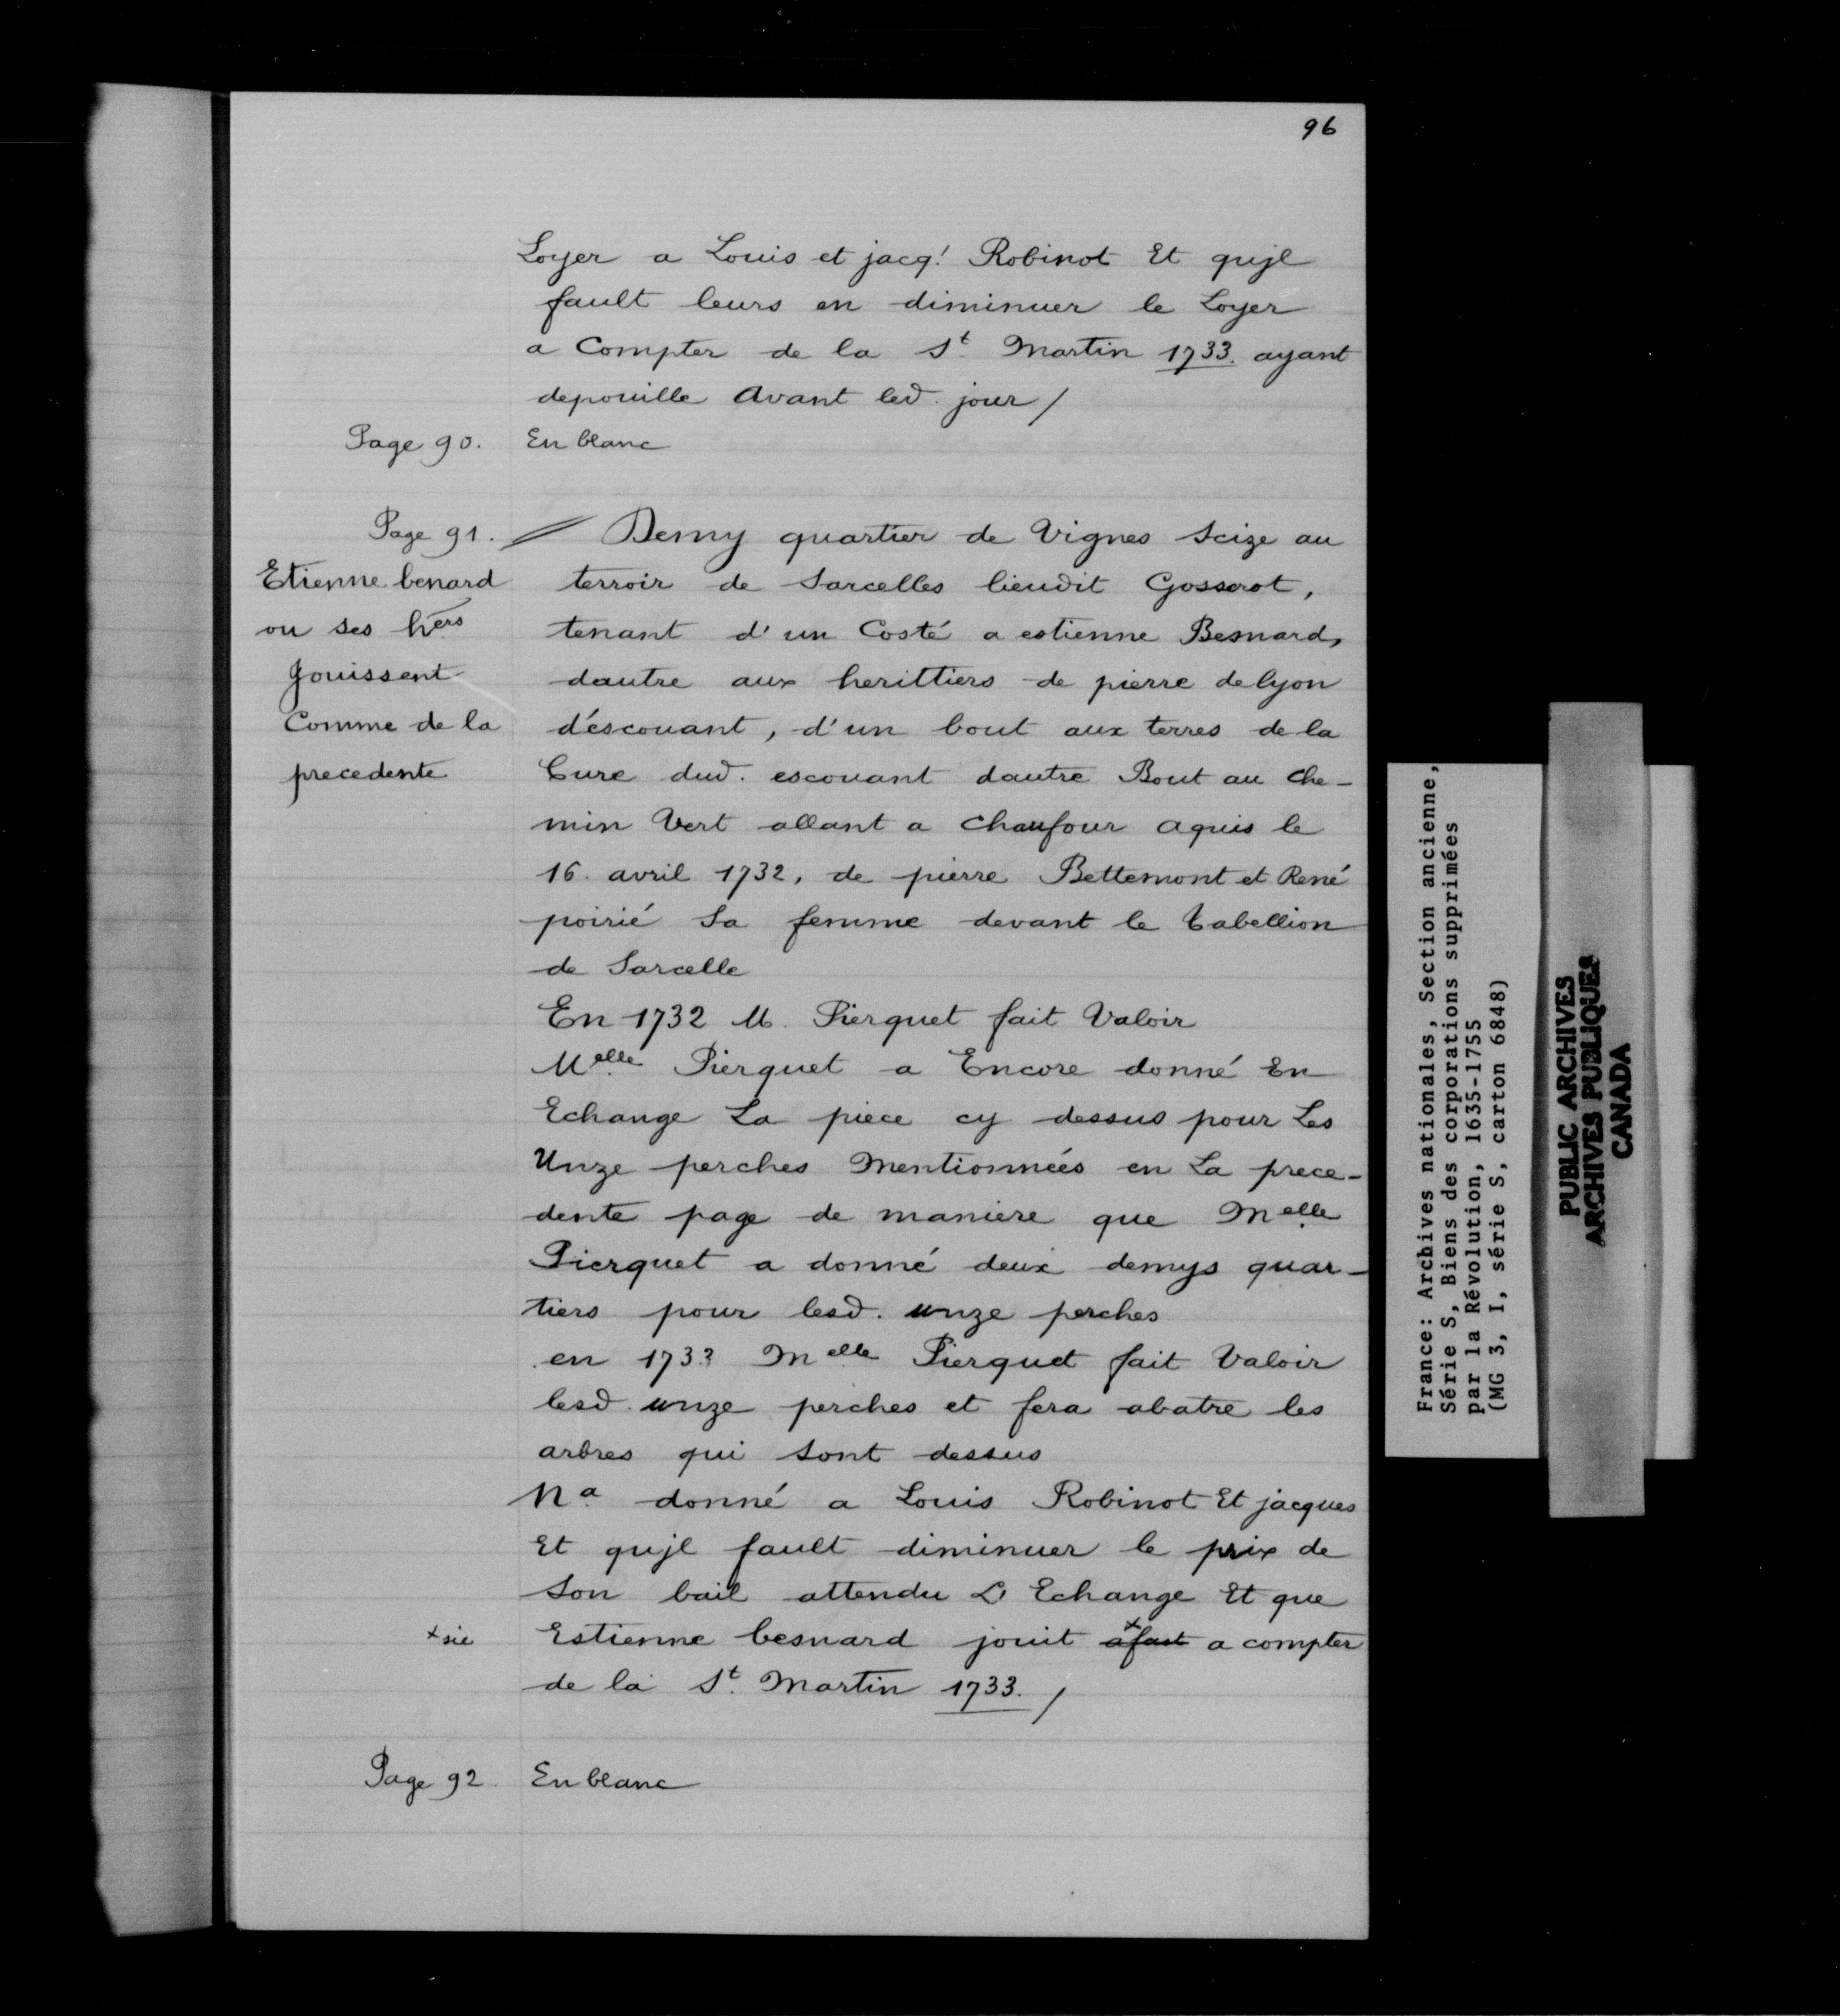 96
Loyer a Louis et jacq! Robinot Et qujl
fault leurs en diminuer le Loyer
a Compter de la St. Martin 1733. ayant
depouille Avant led. jour /
Page 90. En blanc
Page 91. Demy quartier de Vignes Scize au
Etienne benard terroir de Sarcelles lieudit Gosserot,
ou ses hers tenant d'un Costé a estienne Besnard,
Jouissent dautre aux herittiers de pierre delyon
Comme de la d'escouant, d'un bout aux terres de la
precedente Cure dud. escouant dautre Bout au che-
min Vert allant a Chaufour aquis le
16. avril 1732, de pierre Bettemont et René
poirié Sa femme devant le Tabellion
de Sarcelle
En 1732 M. Pierquet fait Valoir
Melle Pierquet a Encore donné En
Echange La piece cy dessus pour Les
Unze perches Mentionnées en La prece-
dente page de maniere que Melle
Pierquet a donné deux demys quar-
tiers pour lesd. unze perches
en 1733 Melle Pierquet fait Valoir
lesd. unze perches et fera abatre les
arbres qui sont dessus
Na donné a Louis Robinot Et jacques
Et qujl fault diminuer le prix de
Son bail attendu L'Echange Et que
x sic Estienne besnard jouit x a fait a compter
de la St. Martin 1733. /
Page 92. En blanc
France: Archives nationales, Section ancienne,
Série S, Biens des corporations supprimées
par la Révolution, 1635-1755
(MG 3, I, série S, carton 6848)
PUBLIC ARCHIVES
ARCHIVES PUBLIQUES
CANADA